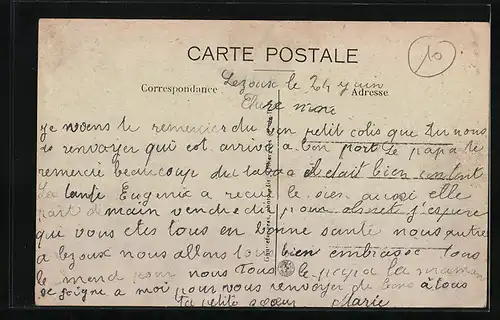 10
CARTE POSTALE
Correspondance
Adresse
Lezoux le 24 juin
Chere mère
je viens te remercier du bon petit colis que tu nous
a renvoyer qui est arrivé a bon port le papa te
remercie beaucoup du tabac il était bien content
La tante Eugenie a recu le sien aussi elle
part demain vendredi pour j'espère
que vous etes tous en bonne santé nous autre
a lezoux nous allons tous bien embrasse tous
le mond pour nous tous le papa la maman
se joigne a moi pour vous renvoyer de bons à tous
Ta petite soeur Marie